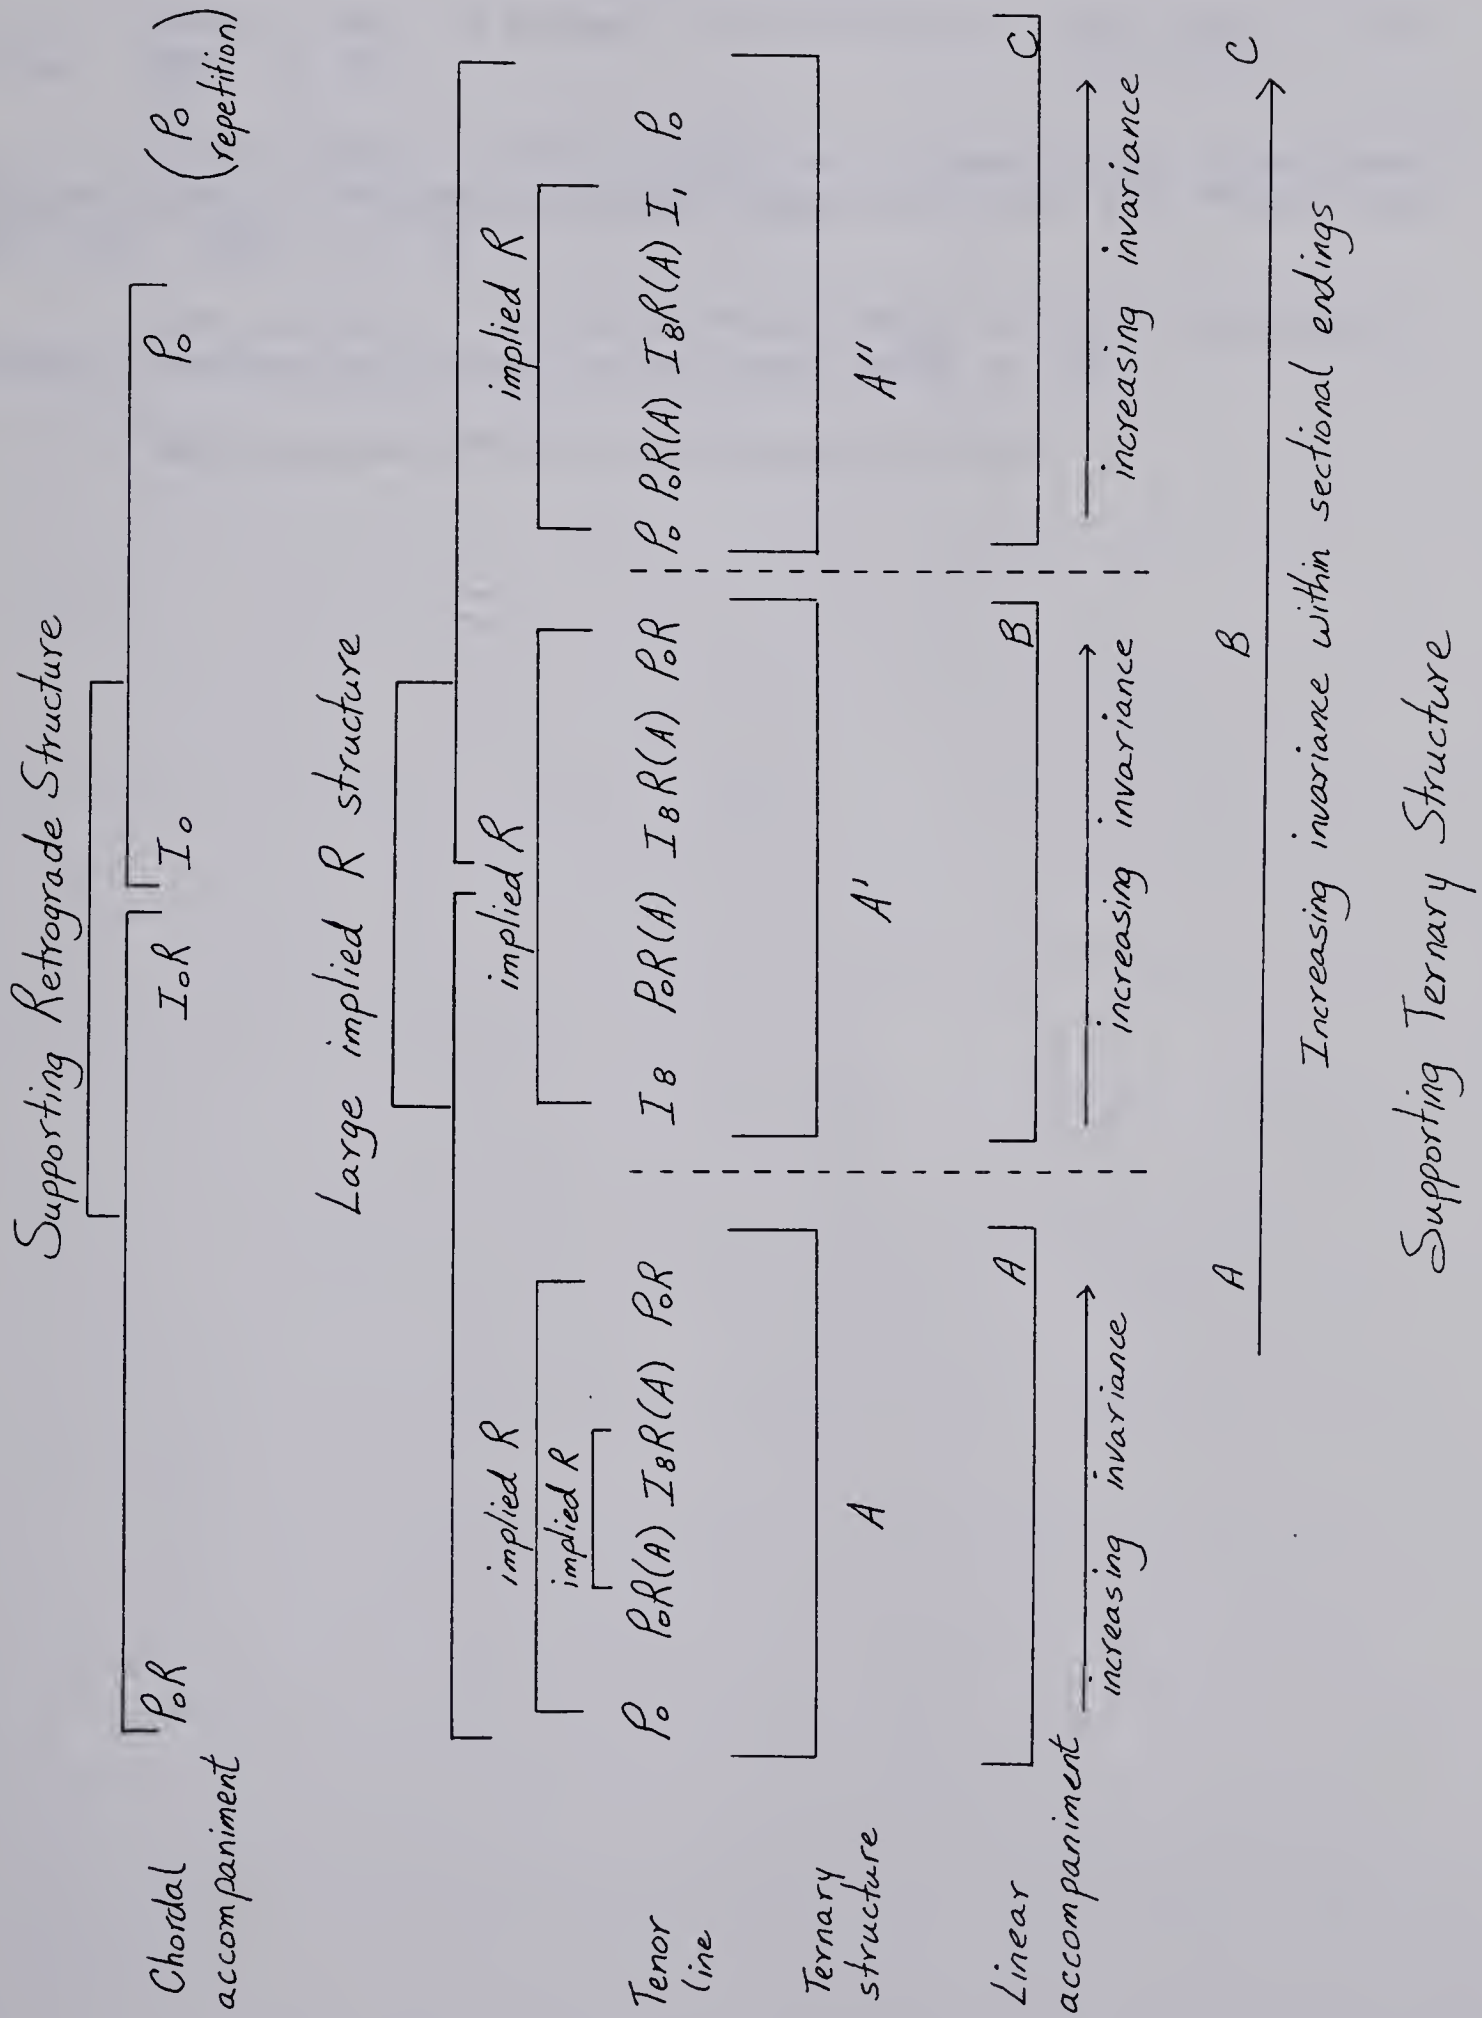 Supporting Retrograde Structure
Chordal accompaniment
P₀R I₀R I₀ P₀ (P₀ repetition)
Large implied R structure
implied R implied R implied R
implied R
Tenor line
P₀ P₀R(A) I₈R(A) P₀R I₈ P₀R(A) I₈R(A) P₀R P₀ P₀R(A) I₈R(A) I₁ P₀
Ternary structure
A A' A''
Linear accompaniment
A B C
increasing invariance increasing invariance increasing invariance
A B C
Increasing invariance within sectional endings
Supporting Ternary Structure